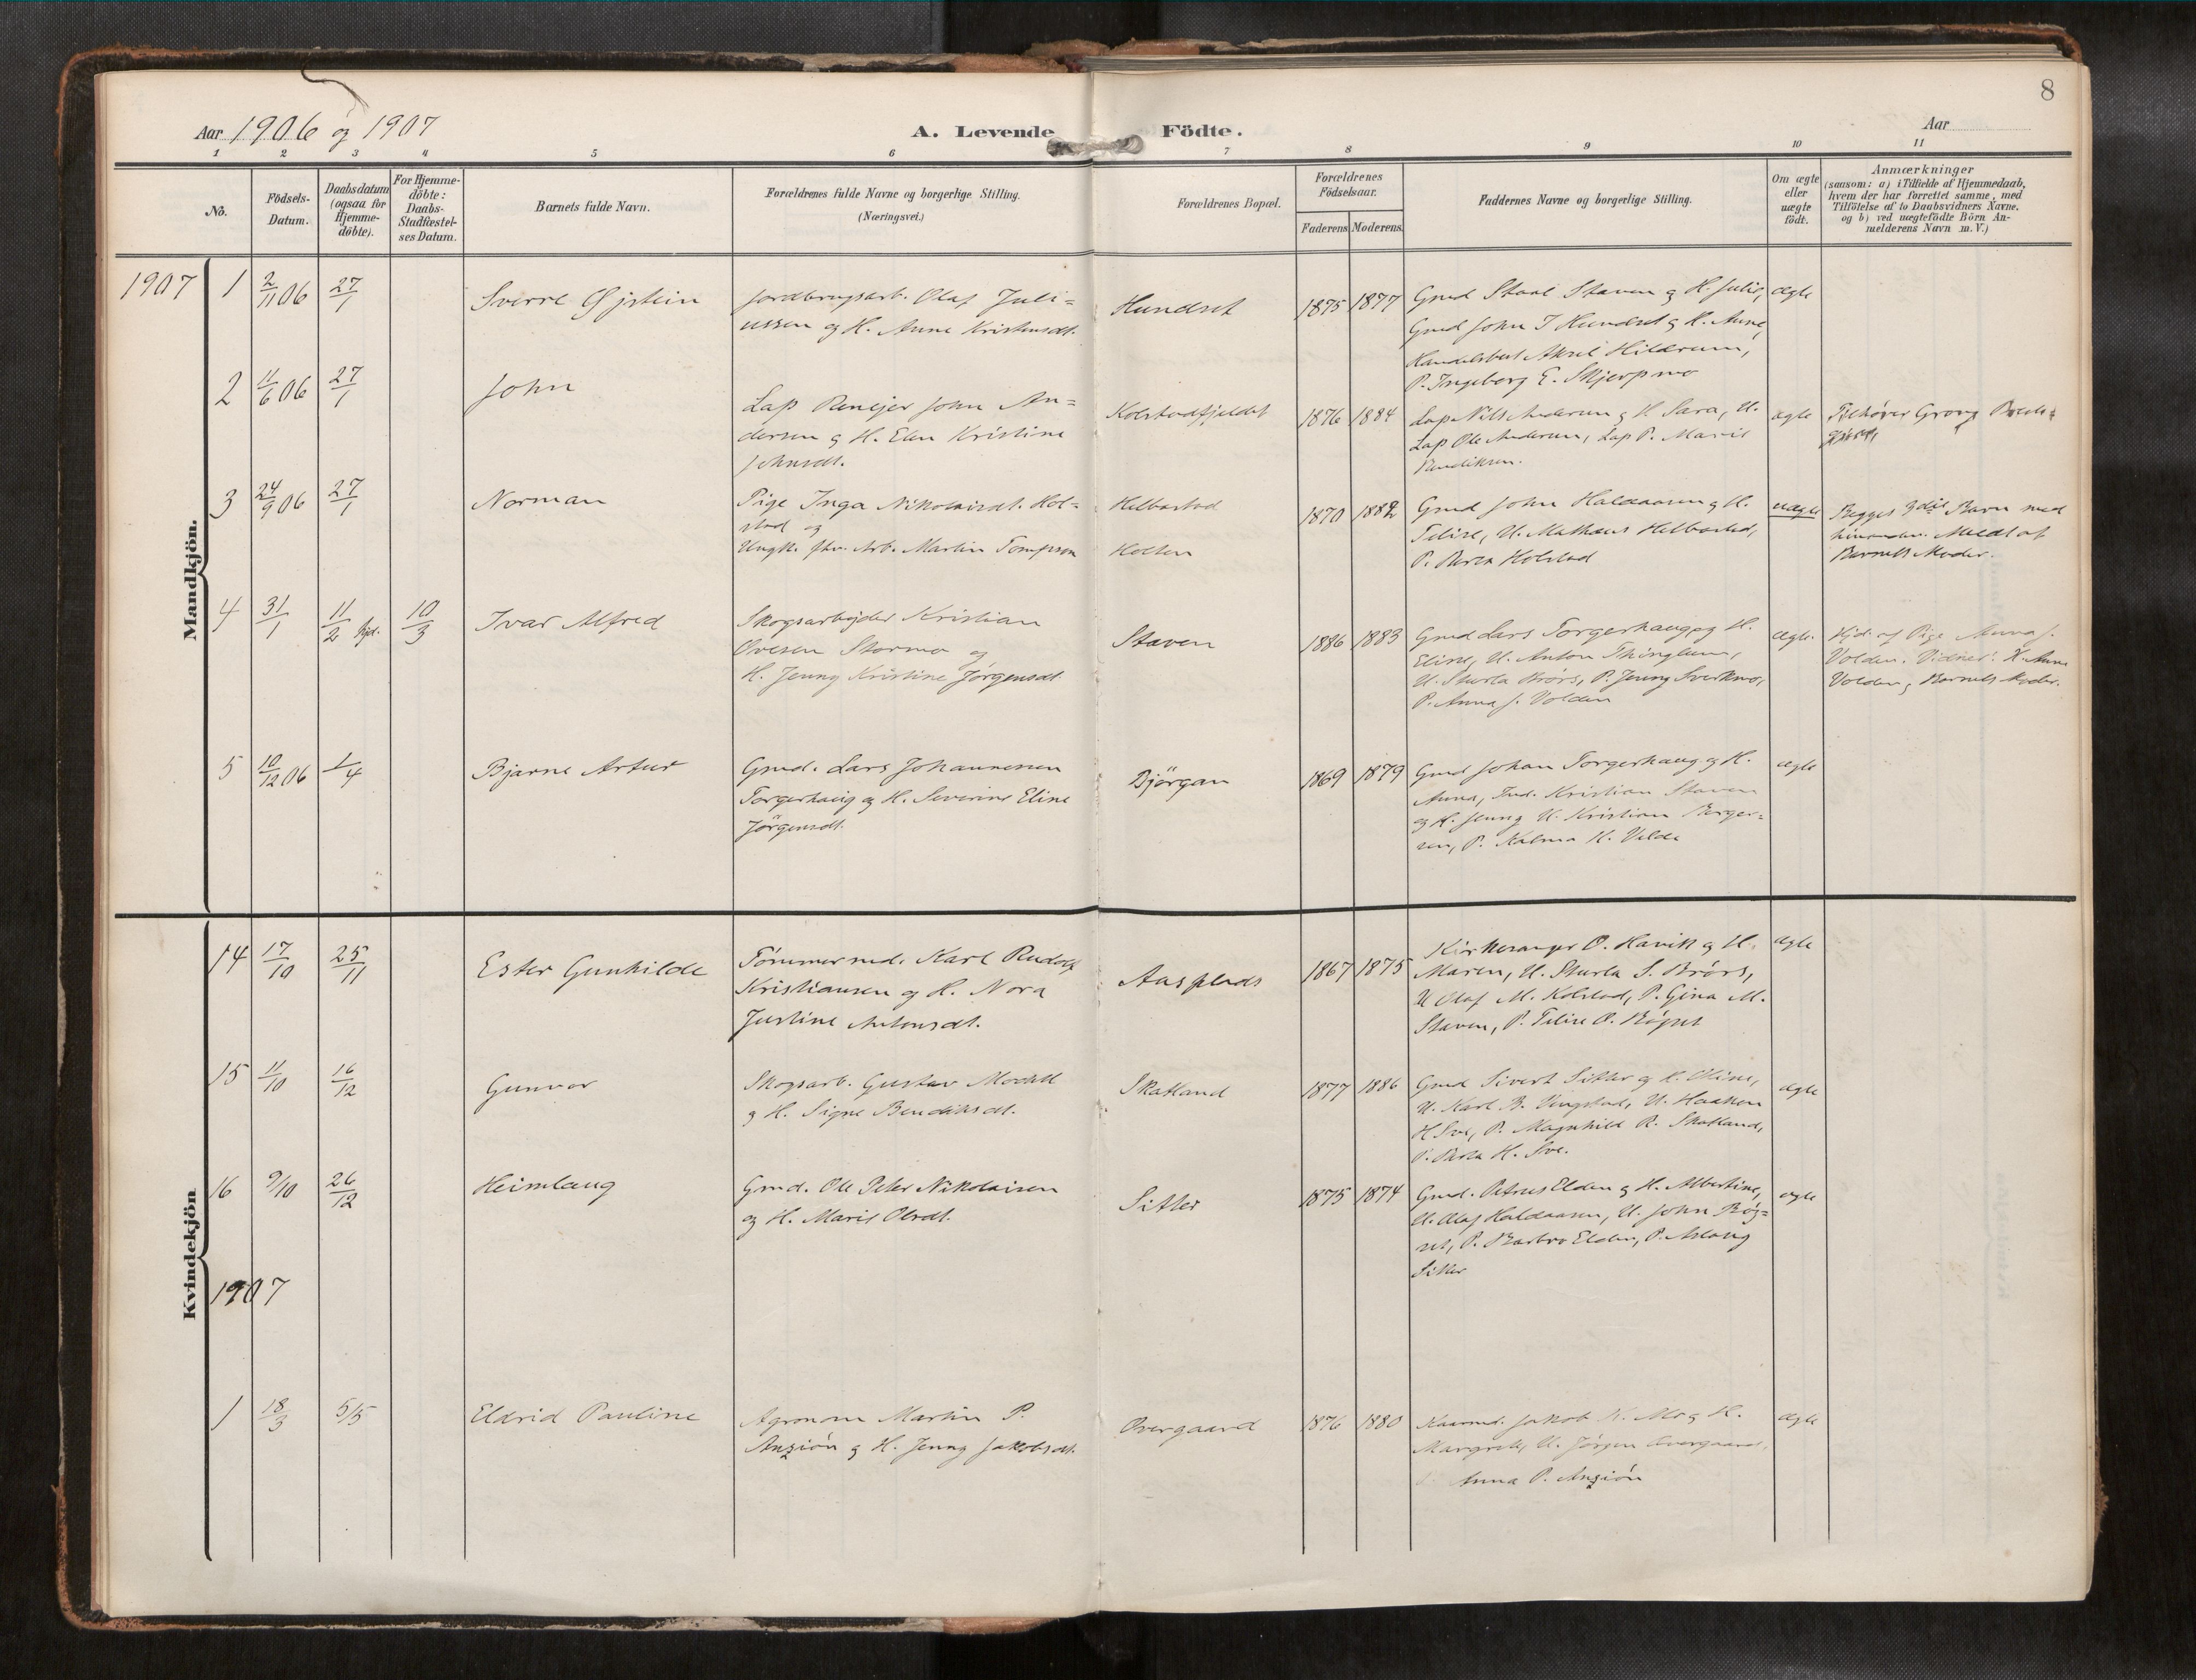 8
Aar 1906 og 1907
A. Levende Födte.
Aar
1 2 3 4 5 6 7 8 9 10 11
No.
Födsels-Datum.
Daabsdatum (ogsaa for Hjemme-döbte).
For Hjemme-döbte: Daabs-Stadfæstel-ses Datum.
Barnets fulde Navn.
Forældrenes fulde Navne og borgerlige Stilling.
(Næringsvei.)
Forældrenes Bopæl.
Forældrenes Födselsaar.
Faderens Moderens.
Faddernes Navne og borgerlige Stilling.
Om ægte eller uægte födt.
Anmærkninger
(saasom: a) i Tilfælde af Hjemmedaab,
hvem der har forrettet samme, med
Tilföielse af to Daabsvidners Navne.
og b) ved uægtefödte Börn An-
melderens Navn m. V.)
Mandkjön.
1907
1 2/11 06 27/1 Sverre Øistein
Jordbrugsarb. Olaf Juli=
ussen og H. Anne Kristensdt.
Hundset 1875 1877
Gmd Staal Staven og H. Julie,
Gmd John J Hundset og H. Anne,
Handelsbest. Aksel Hildrum,
P. Ingeborg E. Skjerpmo
ægte
2 11/6 06 27/1 John
Lap Renejer John An=
dersen og H. Elen Kristine
Johnsdt.
Kolstadfjeldet 1876 1884
Lap Nils Andersen og H. Sara, U.
Lap Ole Andersen, Lap P. Marie
Bendiksen.
ægte
Tilhører Grong
3 24/9 06 27/1 Norman
Pige Inga Nikolaisdt. Hol=
stad og
Ungk. fhv. Arb. Martin Tompson
Helbostad
Holten
1870 1882
Gmd John Haldaasen og H.
Feline, U. Mathæus Helbostad,
P. Holstad
uægte
Begges 2det Barn med
hinanden. Meldt af
Barnets Moder.
4 31/1 11/2 hjd. 10/3 Ivar Alfred
Skogsarbejder Kristian
Ovesen Stormo og
H. Jenny Kristine Jörgensdt.
Staven 1886 1883
Gmd Lars Torgerhaug og H.
Eline, U. Anton Thinglum,
U. Sturla Brörs, P. Jenny Sverkmo,
P. Anna J. Volden
ægte.
Hjd. af Pige Anna J.
Volden. Vidner: K. Anne
Volden, Barnets Moder.
5 10/12 06 1/4 Bjarne Artur
Gmd. Lars Johannesen
Torgerhaug og H. Severine Eline
Jörgensdt.
Björgan 1869 1879
Gmd Johan Torgerhaug og H.
Anna, Ind. Kristian Staven
og H. Jenny U. Kristian Berger=
sen, P. Kalma K. Velde
ægte
Kvindekjön
14 17/10 25/11 Ester Gunhilde
Tömmermd. Karl Rudolf
Kristiansen og H. Nora
Justine Antonsdt.
Aasplads 1867 1875
Kirkesanger O. Havik og H.
Maren, U. Sturla S. Brörs,
U Olaf M. Kolstad, P. Gina M.
Staven, P. Feline O.
ægte
15 11/10 16/12 Gunvor
Skogsarb. Gustav Moebell
og H. Signe Bendiksdt.
Skatland 1877 1886
Gmd Sivert Sitter og H. Oline,
U. Karl B. Vengstad, U. Haakon
H Sve, P. Magnhild R. Skatland,
P. H. Sve.
ægte
16 9/10 26/12 Heimlaug
Gmd. Ole Peter Nikolaisen
og H. Marie Olesdt.
Sitter 1875 1874
Gmd. Petrus Elden og H. Albertine,
U. Olaf Haldaasen, U. John Rög=
set, P. Barbro Elden, P. Aslaug
Sitter
ægte
1907
1 18/3 5/5 Eldrid Pauline
Agronom Martin P.
Anziön og H. Jenny Jakobsdt.
Overgaard 1876 1880
Jakob K. Mo og H.
Margrete, U. Jörgen Overgaard,
Anna P. Anziön
ægte